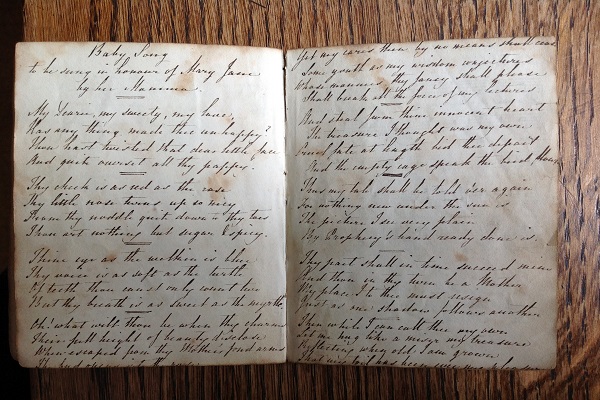 Baby Song
to be sung in honour of Mary Jane
by her Mamma.
My Dearie, my sweety, my love,
Has any thing made thee unhappy?
Thou hast twisted that dear little face
And quite overset all thy pappy.
Thy cheek is as red as the rose
Thy little nose turns up so
down thy noddle quite down to thy toes
Thou art nothing but sugar & spicy.
Thine eye as the welkin is blue
Thy voice is as soft as the
Of teeth thou canst only count two
But thy breath is as sweet as the myrtle.
Oh! what wilt thou be when thy charms
Their full height of beauty disclose
When escaped from thy Mother's fond arms
Yet my cares then by no means shall cease
Some youth is my wisdom conjectures
Whose manners thy fancy shall please
Shall break all the force of my lectures
And shall from thine innocent heart
The treasure I thought was my own
fate at length bid thee depart
And the empty cage speak the bird flown
Thus my tale shall be told o'er again
For nothing new under the sun is
The picture I in very place
By Prophecy's hand ready done is.
Thy part shall in time succeed mine
And thou in thy turn be a Mother
My place I to thee must resign
Just as one shadow follows another
Then while I can call thee my own
Let me hug like a miser my treasure
Reflecting when old I am grown
That